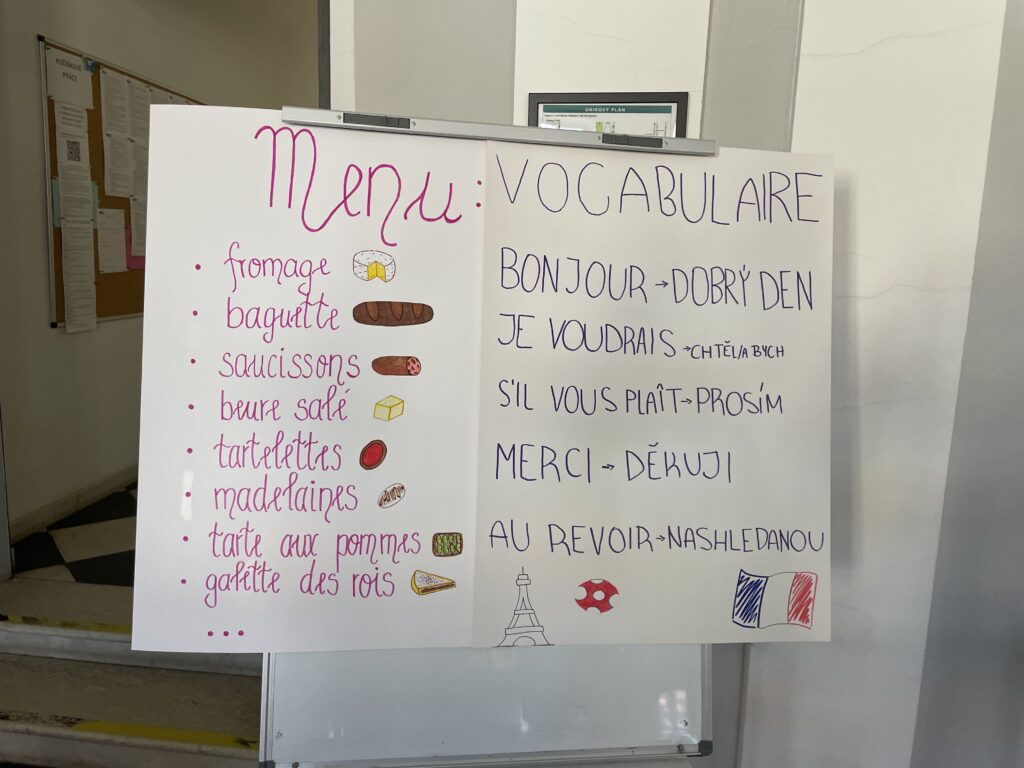 ROČNÍKOVÉ
PRÁCE
ÚNIKOVÝ PLÁN
Menu:
• fromage
• baguette
• saucissons
• beure salé
• tartelettes
• madelaines
• tarte aux pommes
• galette des rois
...
VOCABULAIRE
BONJOUR→DOBRÝ DEN
JE VOUDRAIS→CHTĚL/A BYCH
S'IL VOUS PLAÎT→PROSÍM
MERCI→DĚKUJI
AU REVOIR→NASHLEDANOU